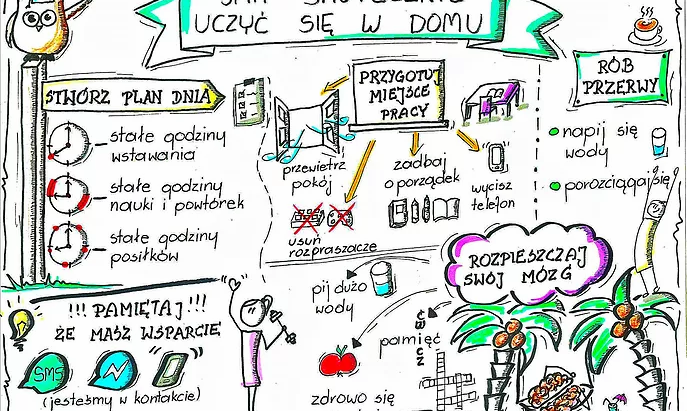 UCZYĆ SIĘ W DOMU
STWÓRZ PLAN DNIA
stałe godziny
wstawania
stałe godziny
nauki i powtórek
stałe godziny
posiłków
PRZYGOTUJ
MIEJSCE
PRACY
przewietrz
pokój
zadbaj
o porządek
wycisz
telefon
usuń
rozpraszacze
RÓB
PRZERWY
napij się
wody
porozciągaj się
ROZPIESZCZAJ
SWÓJ MÓZG
pij dużo
wody
ćwicz
pamięć
zdrowo się
!!! PAMIĘTAJ!!!
ŻE MASZ WSPARCIE
SMS
(jesteśmy w kontakcie)